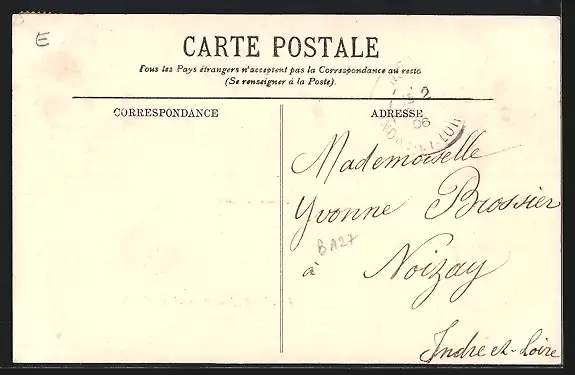 E
CARTE POSTALE
Tous les Pays étrangers n'acceptent pas la Correspondance au recto
(Se renseigner à la Poste).
2
06
INDRE-ET-LOIRE
CORRESPONDANCE
ADRESSE
Mademoiselle
Yvonne Brossier
BA27
à Noizay
Indre et-Loire